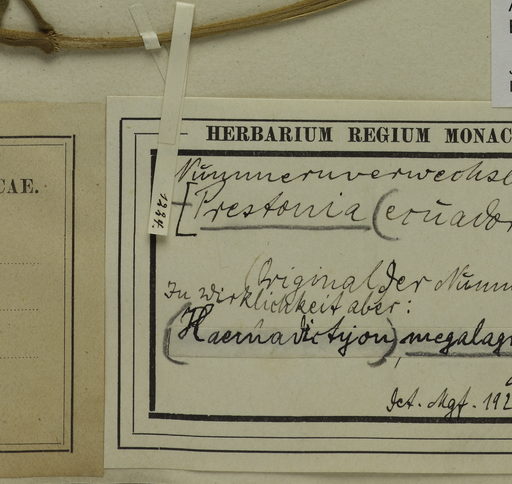 CAE.
HERBARIUM REGIUM MONAC
Nummernverwechsl
[Prestonia (ecuador
(Original der Numm
In Wirklichkeit aber:
(Haemadictyon) megalagr
det. Mgf. 192